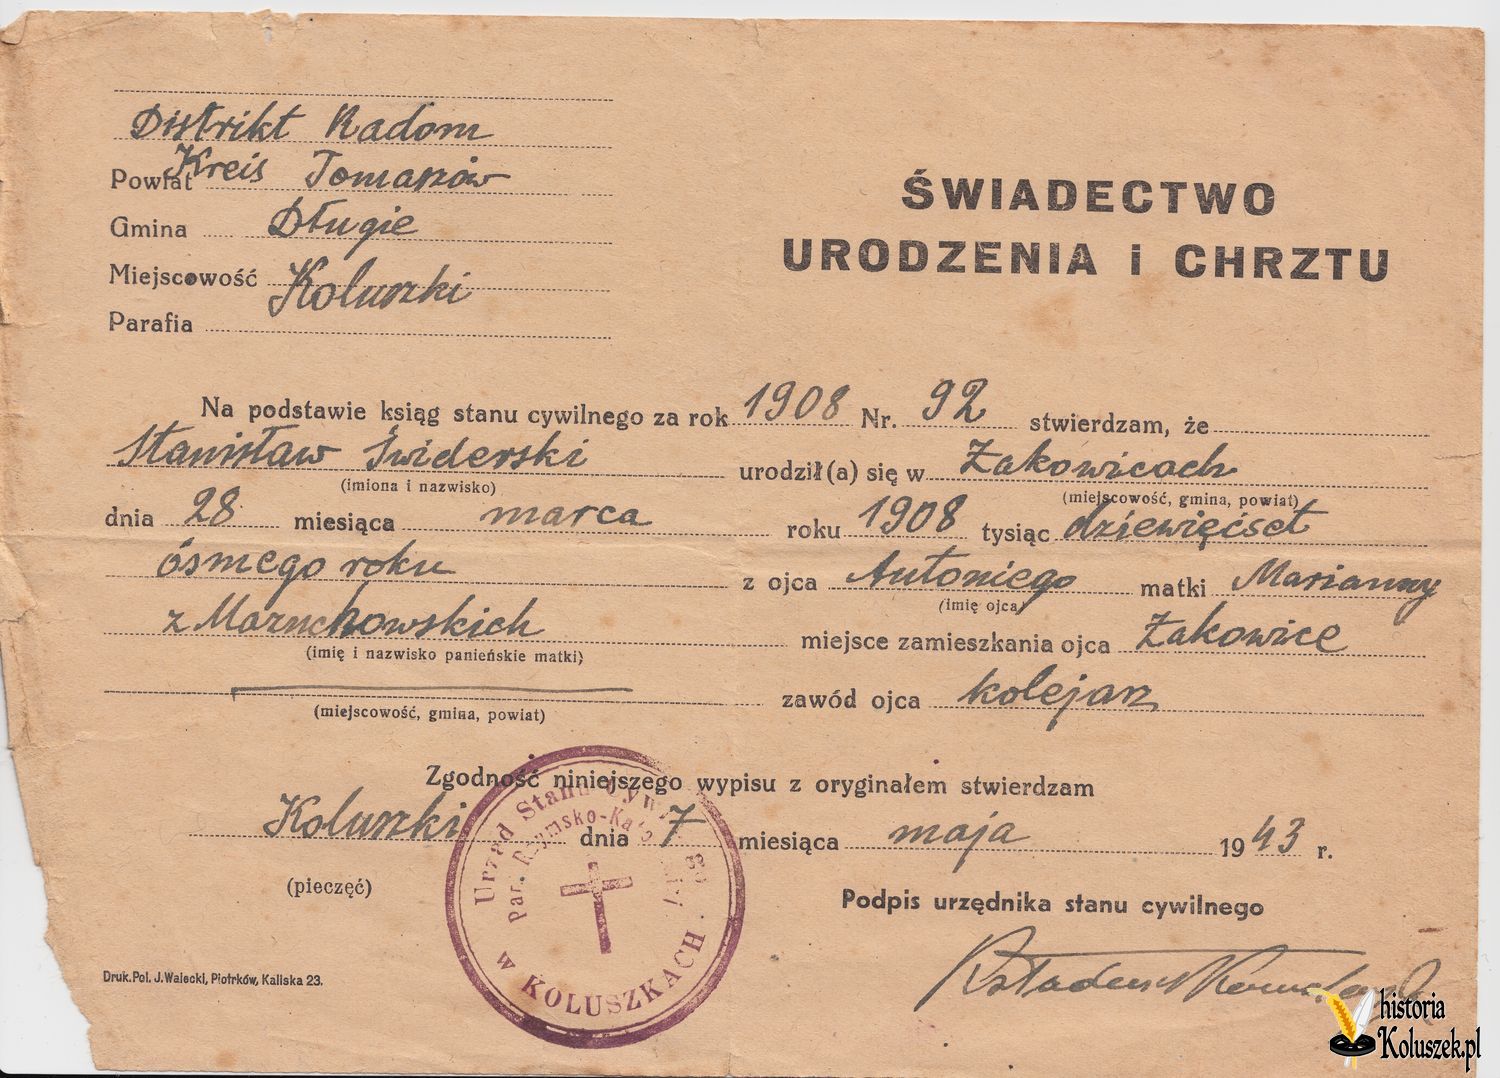 Distrikt Radom
Powiat Kreis Tomaszów
Gmina Długie
Miejscowość Koluszki
Parafia
ŚWIADECTWO
URODZENIA i CHRZTU
Na podstawie ksiąg stanu cywilnego za rok 1908 Nr. 92 stwierdzam, że
Stanisław Świderski urodził(a) się w Żakowicach
(imiona i nazwisko) (miejscowość, gmina, powiat)
dnia 28 miesiąca marca roku 1908 tysiąc dziewięćset
ósmego roku z ojca Antoniego matki Marianny
(imię ojca)
z Maruchowskich miejsce zamieszkania ojca Żakowice
(imię i nazwisko panieńskie matki)
zawód ojca kolejarz
(miejscowość, gmina, powiat)
Zgodność niniejszego wypisu z oryginałem stwierdzam
Koluszki dnia 7 miesiąca maja 1943 r.
(pieczęć)
Podpis urzędnika stanu cywilnego
Urząd Stanu
Par. Rzymsko-
w KOLUSZKACH
Druk. Pol. J. Walecki, Piotrków, Kaliska 23.
historia
Koluszek.pl